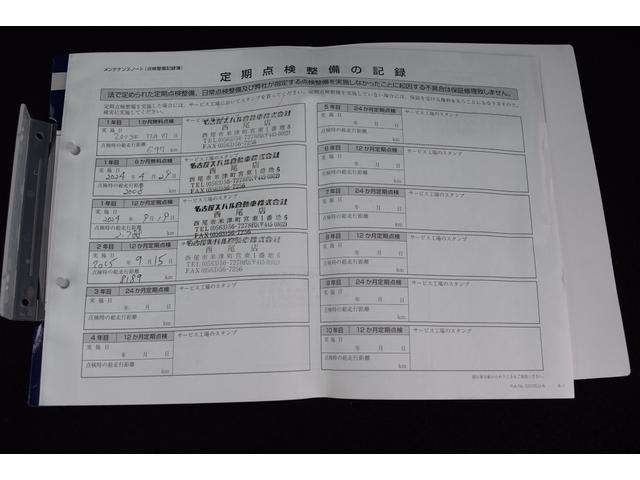 メンテナンスノート（点検整備記録簿）
定期点検整備の記録
法で定められた定期点検整備、日常点検整備及び弊社が指定する点検整備を実施しなかったことに起因する不具合は保証修理致しません。
定期点検整備を実施した場合には、サービス工場においてスタンプを貰ってください。定期点検整備を実施していない場合には、保証を受ける権利を失うことにもなりますので、
確実に実施してください。
1年目 1か月無料点検
実施日
点検時の総走行距離
697 km
サービス工場のスタンプ
名古屋スバル自動車株式会社
西尾店
西尾市米津町宮東1番地6
1年目 6か月無料点検
実施日
2024年 4月 29日
点検時の総走行距離
2008 km
名古屋スバル自動車株式会社
西尾店
西尾市米津町宮東1番地6
1年目 12か月定期点検
実施日
2024年 9月 19日
点検時の総走行距離
km
サービス工場のスタンプ
名古屋スバル自動車株式会社
西尾店
西尾市米津町宮東1番地6
2年目 12か月定期点検
実施日
2025年 9月 15日
点検時の総走行距離
8189 km
名古屋スバル自動車株式会社
西尾店
西尾市米津町宮東1番地6
3年目 24か月定期点検
実施日
年 月 日
点検時の総走行距離
km
サービス工場のスタンプ
4年目 12か月定期点検
実施日
年 月 日
点検時の総走行距離
km
サービス工場のスタンプ
5年目 24か月定期点検
実施日
年 月 日
点検時の総走行距離
km
サービス工場のスタンプ
6年目 12か月定期点検
実施日
年 月 日
点検時の総走行距離
km
サービス工場のスタンプ
7年目 24か月定期点検
実施日
年 月 日
点検時の総走行距離
km
サービス工場のスタンプ
8年目 12か月定期点検
実施日
年 月 日
点検時の総走行距離
km
サービス工場のスタンプ
9年目 24か月定期点検
実施日
年 月 日
点検時の総走行距離
km
サービス工場のスタンプ
10年目 12か月定期点検
実施日
年 月 日
点検時の総走行距離
km
サービス工場のスタンプ